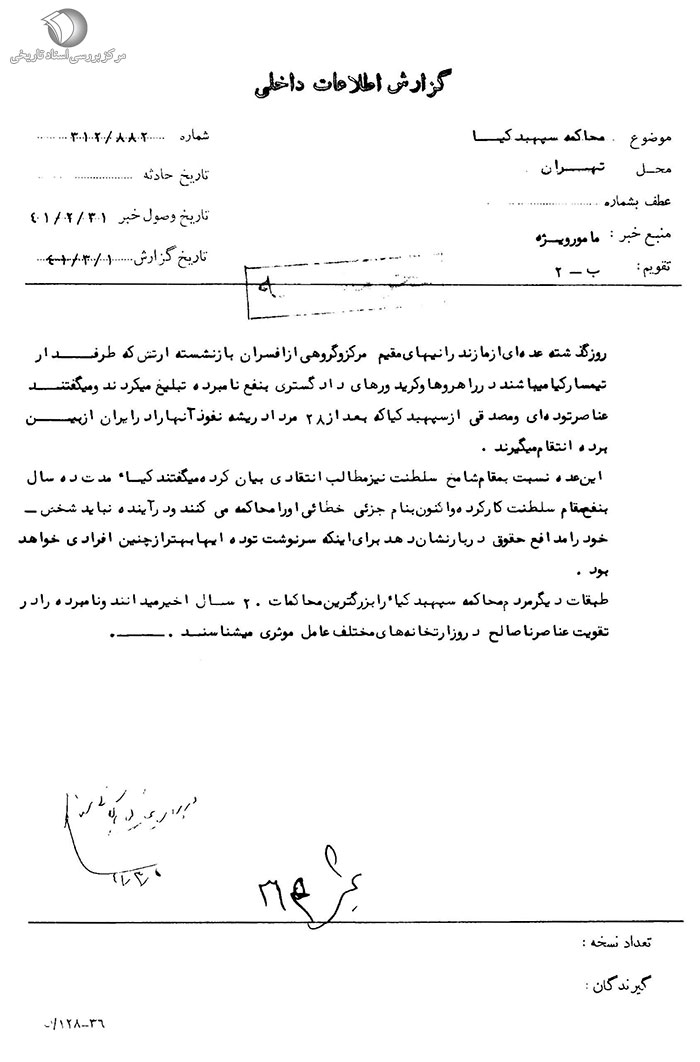 مرکز بررسی اسناد تاریخی
گزارش اطلاعات داخلی
موضوع : محاکمه سپهبد کیا
شماره ۳۱۲/۸۸۲
محل تهران
تاریخ حادثه
عطف بشماره
تاریخ وصول خبر ۴۱/۲/۳۱
منبع خبر : مامور ویژه
تاریخ گزارش ۴۱/۳/۱
تقویم : ب – ۲
روز گذشته عده‌ای از مازندرانیهای مقیم مرکز و گروهی از افسران بازنشسته ارتش که طرفدار
تیمسار کیا میباشند در راهروها و کریدورهای دادگستری بنفع نامبرده تبلیغ میکردند و میگفتند
عناصر توده‌ای و مصدقی از سپهبد کیا که بعد از ۲۸ مرداد ریشه نفوذ آنها را در ایران از بین
برده انتقام میگیرند .
این عده نسبت بمقام شامخ سلطنت نیز مطالب انتقادی بیان کرده میگفتند کیاء مدت ده سال
بنفع مقام سلطنت کار کرده و اکنون بنام جزئی خطائی او را محاکمه می کنند و در آینده نباید شخص –
خود را مدافع حقوق دربار نشان دهد برای اینکه سرنوشت توده ایها بهتر از چنین افرادی خواهد
بود .
طبقات دیگر مردم محاکمه سپهبد کیاء را بزرگترین محاکمات ۲۰ سال اخیر میدانند و نامبرده را در
تقویت عناصر ناصالح در وزارتخانه‌های مختلف عامل موثری میشناسند .
تعداد نسخه :
گیرندگان :
۳۶–۱۲۸/